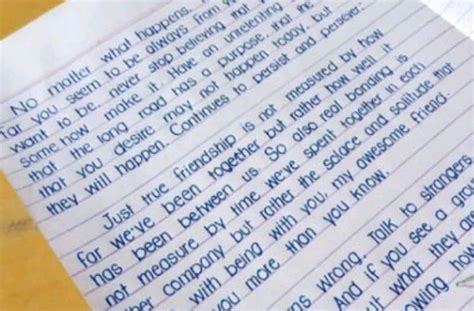 No matta what happens,
far you seem to be always from w
want to be, never stop believing that y
some how make it. Have an unrelenting
that the long road has a purpose..that the
that you desire may not happen today, but
they will happen. Continues to persist and persever.
Just true friendship is not measured by how
far we've been together but rather how well it
has been between us. So also real bonding is
not measure by time we've spent together in each
ther company but rather the solace and solitude that
with being with you, my awesome friend.
you more than you know.
ns wrong. Talk to strangers
And if you see a
ut what they
owing